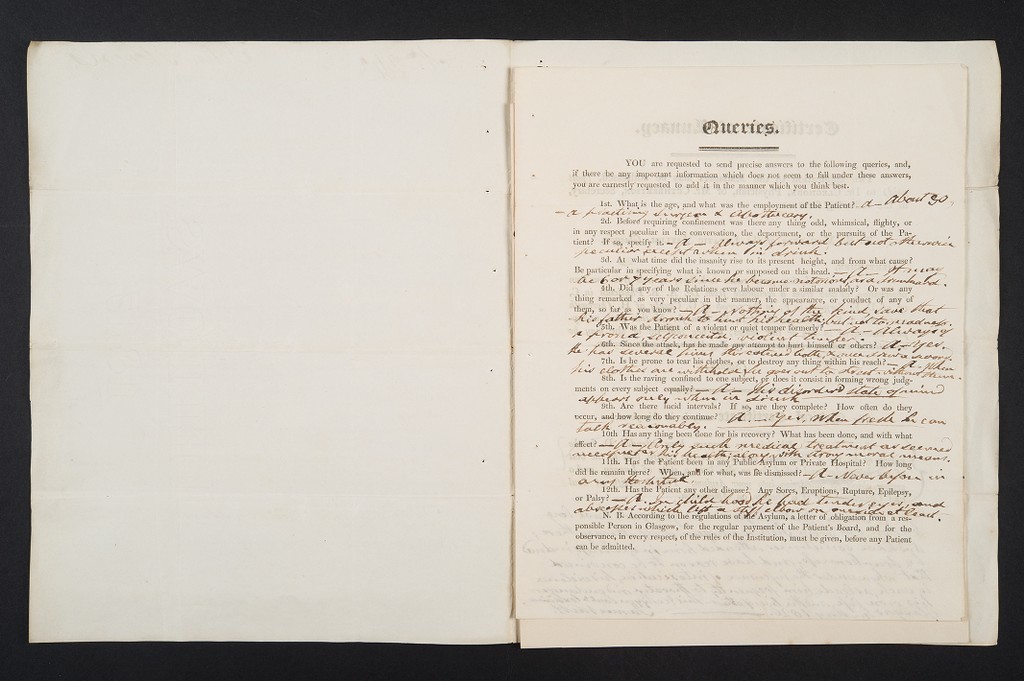 Queries.
YOU are requested to send precise answers to the following queries, and,
if there be any important information which does not seem to fall under these answers,
you are earnestly requested to add it in the manner which you think best.
1st. What is the age, and what was the employment of the Patient? A— About 30,
— a practising Surgeon & Apothecary.
2d. Before requiring confinement was there any thing odd, whimsical, flighty, or
in any respect peculiar in the conversation, the department, or the pursuits of the Pa-
tient? If so, specify it. — A — Always forward but not otherwise
peculiar except when in drink.
3d. At what time did the insanity rise to its present height, and from what cause?
Be particular in specifying what is known or supposed on this head. — A — It may
be 6 or 7 years since he became notorious as a drunkard.
4th. Did any of the Relations ever labour under a similar malady? Or was any
thing remarked as very peculiar in the manner, the appearance, or conduct of any of
them, so far as you know? — A — Nothing of the kind, save that
his father drank to hurt his health, but not to madness.
5th. Was the Patient of a violent or quiet temper formerly? — A — Always of
a proud, selfconceited, violent temper.
6th. Since the attack, has he made any attempt to hurt himself or others? A — Yes.
he has several times both, &
7th. Is he prone to tear his clothes, or to destroy any thing within his reach? — A — When
his clothes are withheld he goes out to the street without them.
8th. Is the raving confined to one subject, or does it consist in forming wrong judg-
ments on every subject equally? — A — His disordered state of mind
appears only when in drink
9th. Are there lucid intervals? If so, are they complete? How often do they
occur, and how long do they continue? A. — Yes, when fresh he can
talk reasonably.
10th Has any thing been done for his recovery? What has been done, and with what
effect? — A — Only such medical treatment as seemed
needful for his health; along with strong moral means.
11th. Has the Patient been in any Public Asylum or Private Hospital? How long
did he remain there? When, and for what, was he dismissed? — A — Never before in
any Hospital.
12th. Has the Patient any other disease? Any Sores, Eruptions, Rupture, Epilepsy,
or Palsy? — A. In child hood he had tender eyes, and
abscesses which left a stiff elbow on one side at least.
N. B. According to the regulations of the Asylum, a letter of obligation from a res-
ponsible Person in Glasgow, for the regular payment of the Patient's Board, and for the
observance, in every respect, of the rules of the Institution, must be given, before any Patient
can be admitted.